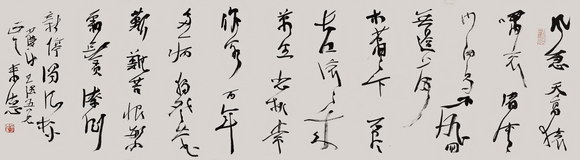 風急天高猿
嘯哀渚清
沙白鳥飛回
無邊落
木蕭蕭下不盡
長江滾滾來
萬里悲秋常
作客百年
多病獨登臺
艱難苦恨繁
霜鬢潦倒
新停濁酒杯